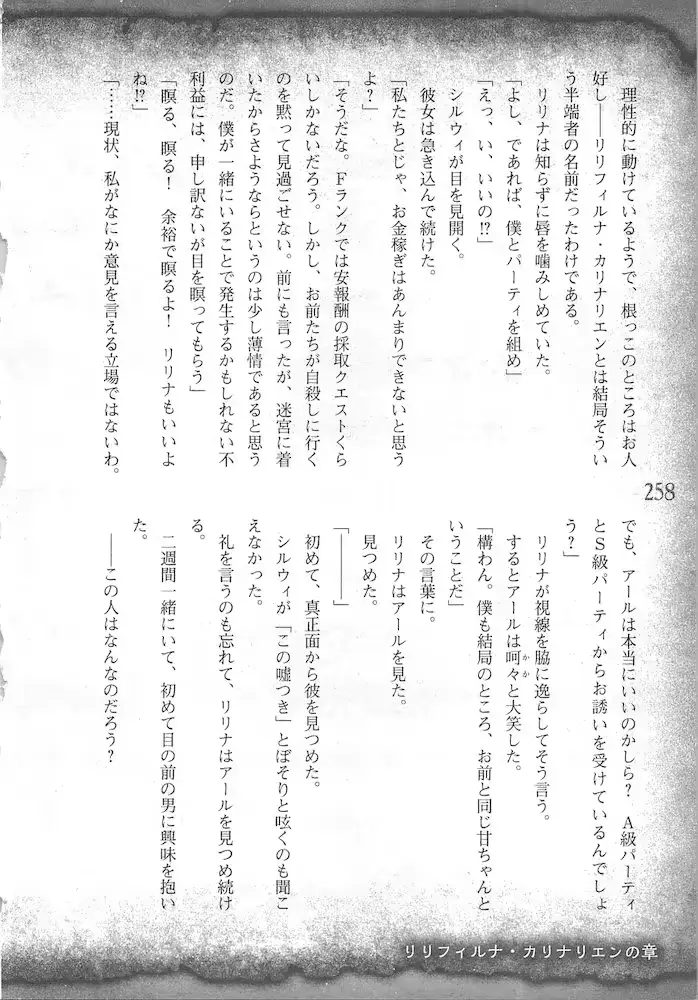 理性的に動けているようで、根っこのところはお人
好し――リリフィルナ・カリナリエンとは結局そうい
う半端者の名前だったわけである。
リリナは知らずに唇を噛みしめていた。
「よし、であれば、僕とパーティを組め」
「えっ、い、いいの⁉」
シルウィが目を見開く。
彼女は急き込んで続けた。
「私たちとじゃ、お金稼ぎはあんまりできないと思う
よ？」
「そうだな。Fランクでは安報酬の採取クエストくら
いしかないだろう。しかし、お前たちが自殺しに行く
のを黙って見過ごせない。前にも言ったが、迷宮に着
いたからさようならというのは少し薄情であると思う
のだ。僕が一緒にいることで発生するかもしれない不
利益には、申し訳ないが目を瞑ってもらう」
「瞑る、瞑る！　余裕で瞑るよ！　リリナもいいよ
ね⁉」
「……現状、私がなにか意見を言える立場ではないわ。
でも、アールは本当にいいのかしら？　A級パーティ
とS級パーティからお誘いを受けているんでしょ
う？」
リリナが視線を脇に逸らしてそう言う。
するとアールは呵々と大笑した。
「構わん。僕も結局のところ、お前と同じ甘ちゃんと
いうことだ」
その言葉に。
リリナはアールを見た。
見つめた。
「――――」
初めて、真正面から彼を見つめた。
シルウィが「この嘘つき」とぼそりと呟くのも聞こ
えなかった。
礼を言うのも忘れて、リリナはアールを見つめ続け
る。
二週間一緒にいて、初めて目の前の男に興味を抱い
た。
――この人はなんなのだろう？
258
リリフィルナ・カリナリエンの章